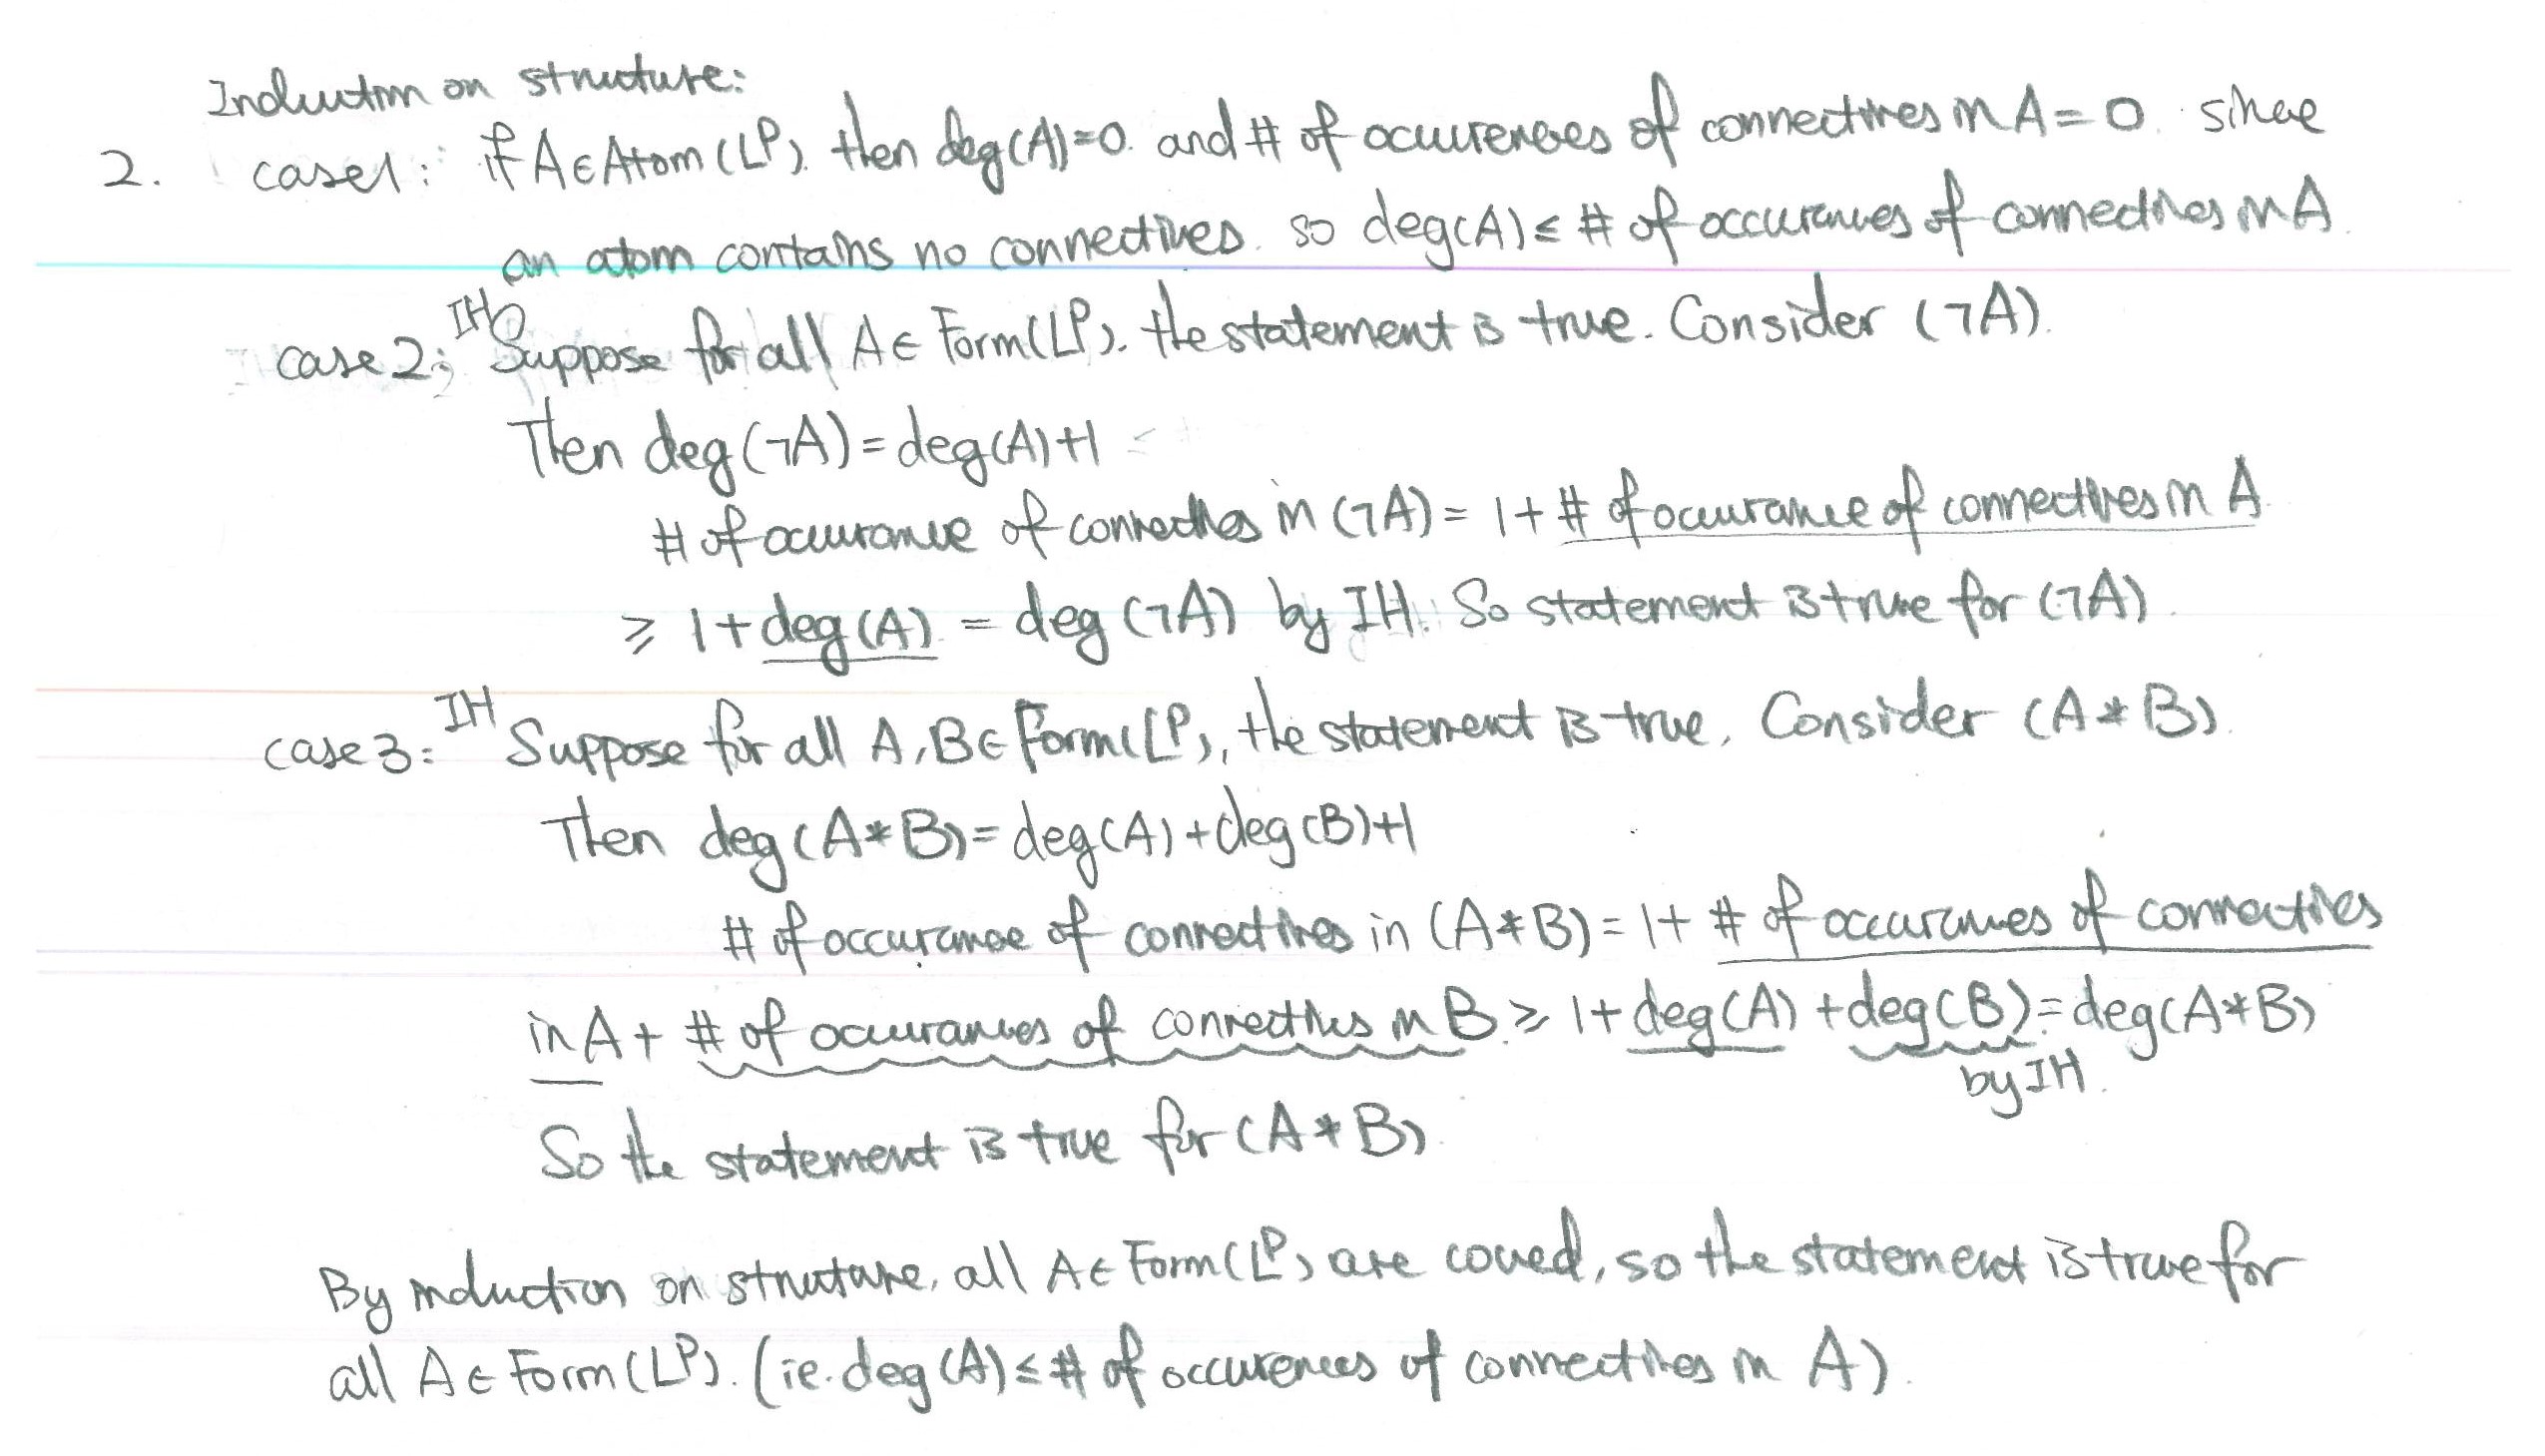 Induction on structure:
2. case1: if A∈Atom(Lᵖ), then deg(A)=0. and # of ocurrences of connectives in A=0. since
an atom contains no connectives. so deg(A)≤ # of occurances of connectives in A.
IH
case2: Suppose for all A∈ Form(Lᵖ). the statement is true. Consider (¬A).
Then deg(¬A)=deg(A)+1
# of occurance of connectives in (¬A)= 1+ # of occurance of connectives in A.
≥ 1+deg(A) = deg(¬A) by IH. So statement is true for (¬A).
IH
case3: Suppose for all A,B∈Form(Lᵖ), the statement is true. Consider (A*B).
Then deg(A*B)=deg(A)+deg(B)+1
# of occurance of connectives in (A*B)=1+ # of occurances of connectives
in A+ # of occurances of connectives in B. ≥ 1+deg(A)+deg(B)=deg(A*B)
by IH.
So the statement is true for (A*B)
By induction on structure, all A∈Form(Lᵖ) are coved, so the statement is true for
all A∈Form(Lᵖ). (ie. deg(A)≤# of occurences of connectives in A).